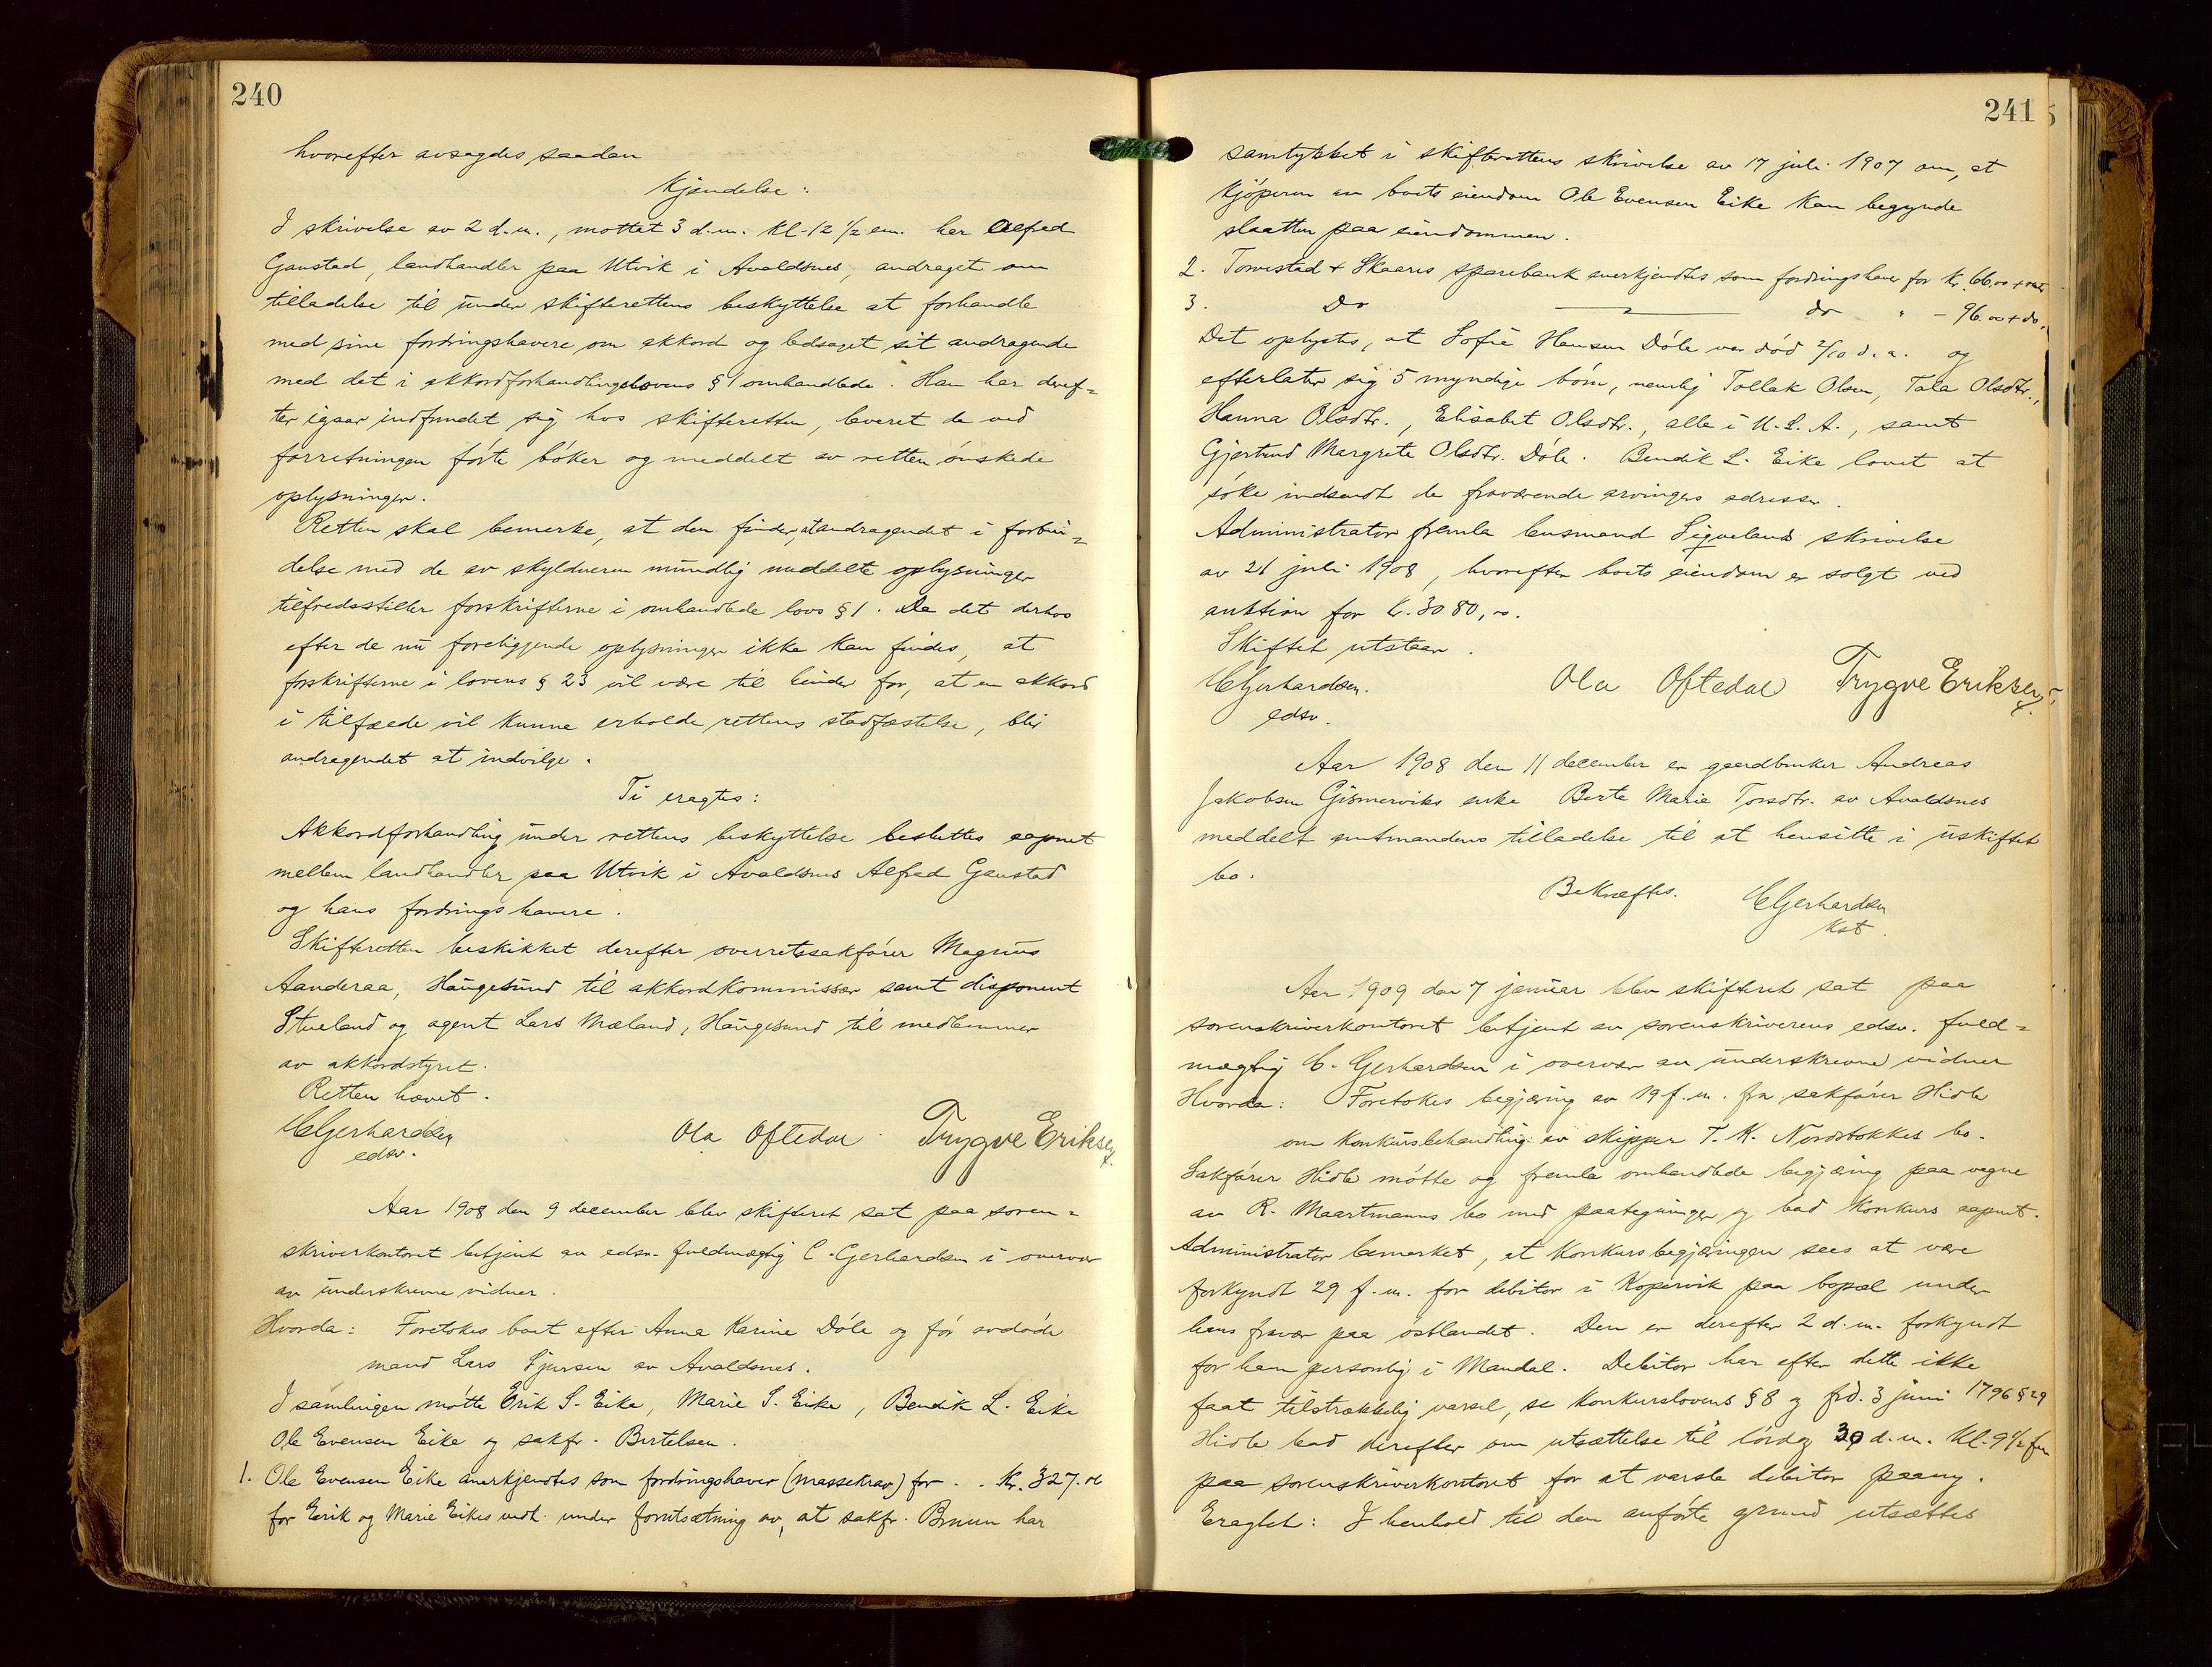 240
hvorefter avsagdes saadan
Kjendelse:
I skrivelse av 2 d.m., mottat 3 d.m. kl. 12 1/2 em. har Alfred
Gaustad, landhandler paa Utvik i Avaldsnes, andraget om
tilladelse til under skifterettens beskyttelse at forhandle
med sine fordringshavere om akkord og ledsaget sit andragende
med det i akkordforhandlingslovens § 1 omhandlede. Han har deref=
ter igaar indfundet sig hos skifteretten, leveret de ved
forretningen førte bøker og meddelt av retten ønskede
oplysninger.
Retten skal bemerke, at den finder, at andragendet i forbin=
delse med de av skyldneren mundtlig meddelte oplysninger
tilfredsstiller forskrifterne i omhandlede lovs § 1. Da det derhos
efter de nu foreliggende oplysninger ikke kan findes, at
forskrifterne i lovens § 23 vil være til hinder for, at en akkord
i tilfælde vil kunne erholde rettens stadfæstelse, blir
andragendet at indvilge.
Ti eragtes:
Akkordforhandling under rettens beskyttelse besluttes aapnet
mellem landhandler paa Utvik i Avaldsnes Alfred Gaustad
og hans fordringshavere.
Skifteretten beskikket derefter overretssakfører Magnus
Aanderaa, Haugesund til akkordkommissær samt disponent
Stueland og agent Lars Mæland, Haugesund til medlemmer
av akkordstyret.
Retten hævet.
CGerhardsen Ola Oftedal. Trygve Eriksen
edsv.
Aar 1908 den 9 december blev skifteret sat paa soren=
skriverkontoret betjent av edsv. fuldmægtig C. Gerhardsen i overvær
av underskrevne vidner.
Hvorda: Foretokes boet efter Anna Karine Døle og før avdøde
mand Lars Sjursen av Avaldsnes.
I samlingen møtte Erik S. Eike, Marie S. Eike, Bendik L. Eike
Ole Evensen Eike og sakfr. Bertelsen.
1. Ole Evensen Eike anerkjendtes som fordringshaver (massekrav) for . . Kr. 327.00
for Erik og Marie Eikes vedk. under forutsætning av, at sakfr. Bruun har
241
samtykket i skifterettens skrivelse av 17 juli 1907 om, at
kjøperen av boets eiendom Ole Evensen Eike kan begynde
slaatten paa eiendommen.
2. Torvestad & Skaares sparebank anerkjendtes som fordringshaver for kr. 66.00 + rent.
3. Do do " - 96.00 + do.
Det oplystes, at Sofie Hansen Døle var død 2/10 d.a. og
efterlater sig 5 myndige børn, nemlig Tollak Olsen, Tala Olsdtr.,
Hanna Olsdtr., Elisabet Olsdtr., alle i U.S.A., samt
Gjertrud Margrete Olsdtr. Døle. Bendik L. Eike lovet at
søke indsendt de fraværende arvingers adresser.
Administrator fremla lensmand Sigvelands skrivelse
av 21 juli 1908, hvorefter boets eiendom er solgt ved
auktion for Kr. 3080,00.
Skiftet utstaar.
CGerhardsen. Ola Oftedal Trygve Eriksen
edsv.
Aar 1908 den 11 december er gaardbruker Andreas
Jakobsen Gismerviks enke Berte Marie Torsdtr. av Avaldsnes
meddelt amtmandens tilladelse til at hensitte i uskiftet
bo.
Bekræftes. CGerhardsen
kst.
Aar 1909 den 7 januar blev skifteret sat paa
sorenskriverkontoret betjent av sorenskriverens edsv. fuld=
mægtig C. Gerhardsen i overvær av underskrevne vidner
Hvorda: Foretokes begjæring av 19 f.m. fra sakfører Hidle
om konkursbehandling av skipper T. K. Nordstokkes bo.
Sakfører Hidle møtte og fremla omhandlede begjæring paa vegne
av R. Maartmanns bo med paategninger og bad konkurs aapnet.
Administrator bemerket, at konkursbegjæringen sees at være
forkyndt 29 f.m. for debitor i Kopervik paa bopæl under
hans fravær paa østlandet. Den er derefter 2 d.m. forkyndt
for ham personlig i Mandal. Debitor har efter dette ikke
faat tilstrækkelig varsel, se konkurslovens § 8 og frd. 3 juni 1796 § 29
Hidle bad derefter om utsættelse til lørdag 30 d.m. kl. 9 1/2 fm
paa sorenskriverkontoret for at varsle debitor paany.
Eragtet: I henhold til den anførte grund utsættes